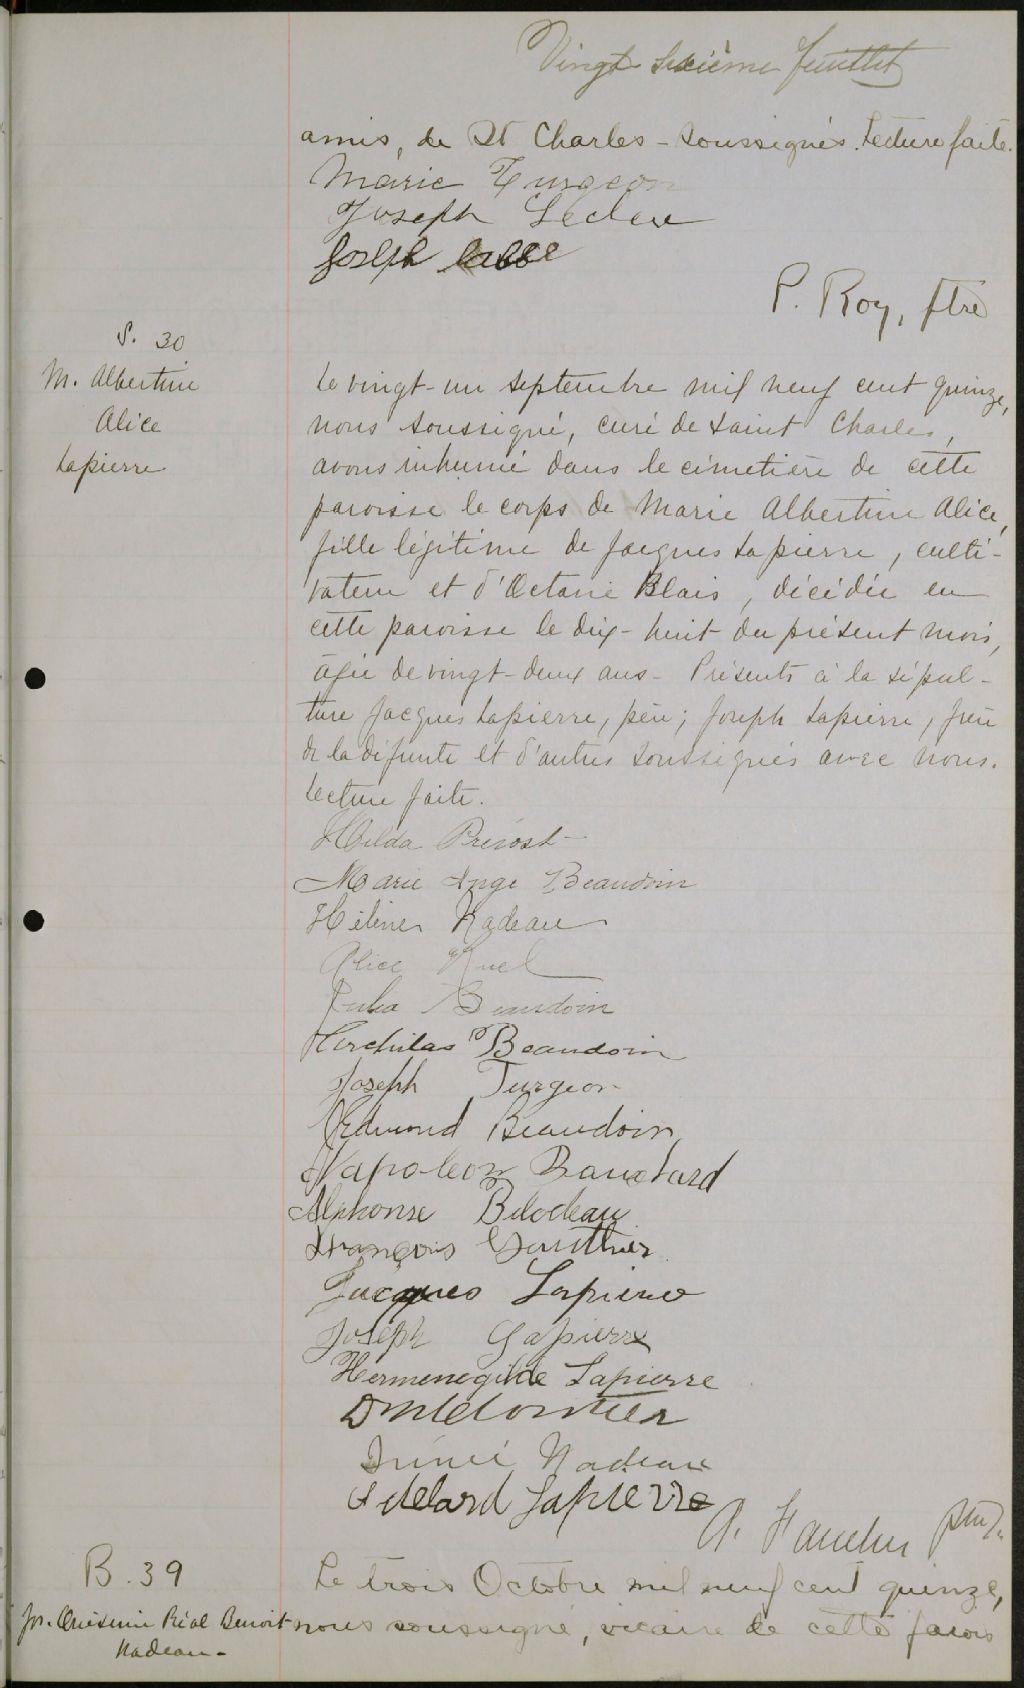 Vingt sixième feuillet
amis, de St Charles - soussignés. Lecture faite.
Marie Turgeon
Joseph Leclere
Joseph Labbé
P. Roy, ptre
S. 30
M. Albertine
Alice
Lapierre
Le vingt-un septembre mil neuf cent quinze,
nous soussigné, curé de Saint Charles,
avons inhumé dans le cimetière de cette
paroisse le corps de Marie Albertine Alice,
fille légitime de Jacques Lapierre, culti-
vateur et d'Octavie Blais, décédée en
cette paroisse le dix-huit du présent mois,
âgée de vingt-deux ans - Présents à la sépul-
ture Jacques Lapierre, père; Joseph Lapierre, frère
de la défunte et d'autres soussignés avec nous.
Lecture faite.
Hilda Prévost
Marie Ange Beaudoin
Hélène Nadeau
Alice Ruel
Julia Beaudoin
Archilas Beaudoin
Joseph Turgeon
Edmond Beaudoin
Napoleon Bouchard
Alphonse Bilodeau
François Gauthier
Jacques Lapierre
Joseph Lapierre
Hermenegilde Lapierre
Irénée Nadeau
Adélard Lapierre
B. 39
Jos. Onésime Réal Benoit
Nadeau -
Le trois Octobre mil neuf cent quinze,
nous soussigné, vicaire de cette parois